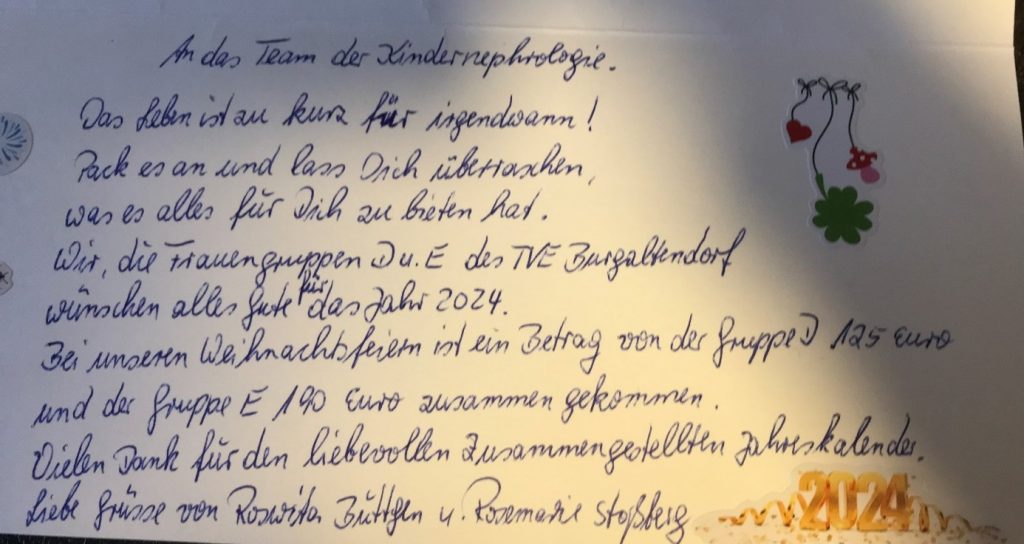 An das Team der Kindernephrologie.
Das Leben ist zu kurz für irgendwann!
Pack es an und lass Dich überraschen,
was es alles für Dich zu bieten hat.
Wir, die Frauengruppen D u. E des TVE Burgaltendorf
wünschen alles Gute für das Jahr 2024.
Bei unseren Weihnachtsfeiern ist ein Betrag von der Gruppe D 125 Euro
und der Gruppe E 190 Euro zusammen gekommen.
Vielen Dank für den liebevollen zusammengestellten Jahreskalender.
Liebe Grüsse von Roswita Büttgen u. Rosemarie Stoßberg
2024